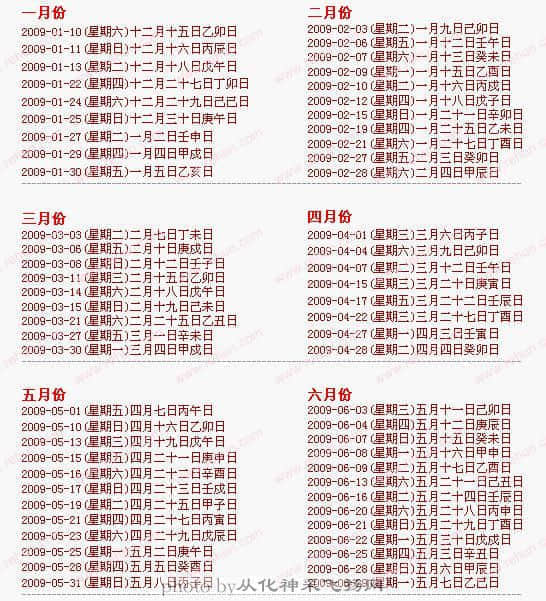 一月份
2009-01-10(星期六)十二月十五日乙卯日
2009-01-11(星期日)十二月十六日丙辰日
2009-01-13(星期二)十二月十八日戊午日
2009-01-22(星期四)十二月二十七日丁卯日
2009-01-24(星期六)十二月二十九日己巳日
2009-01-25(星期日)十二月三十日庚午日
2009-01-27(星期二)一月二日壬申日
2009-01-29(星期四)一月四日甲戌日
2009-01-30(星期五)一月五日乙亥日
二月份
2009-02-03(星期二)一月九日己卯日
2009-02-06(星期五)一月十二日壬午日
2009-02-07(星期六)一月十三日癸未日
2009-02-09(星期一)一月十五日乙酉日
2009-02-10(星期二)一月十六日丙戌日
2009-02-12(星期四)一月十八日戊子日
2009-02-15(星期日)一月二十一日辛卯日
2009-02-19(星期四)一月二十五日乙未日
2009-02-21(星期六)一月二十七日丁酉日
2009-02-27(星期五)二月三日癸卯日
2009-02-28(星期六)二月四日甲辰日
三月份
2009-03-03(星期二)二月七日丁未日
2009-03-06(星期五)二月十日庚戌日
2009-03-08(星期日)二月十二日壬子日
2009-03-11(星期三)二月十五日乙卯日
2009-03-14(星期六)二月十八日戊午日
2009-03-15(星期日)二月十九日己未日
2009-03-21(星期六)二月二十五日乙丑日
2009-03-27(星期五)三月一日辛未日
2009-03-30(星期一)三月四日甲戌日
四月份
2009-04-01(星期三)三月六日丙子日
2009-04-04(星期六)三月九日己卯日
2009-04-07(星期二)三月十二日壬午日
2009-04-15(星期三)三月二十日庚寅日
2009-04-17(星期五)三月二十二日壬辰日
2009-04-22(星期三)三月二十七日丁酉日
2009-04-27(星期一)四月三日壬寅日
2009-04-28(星期二)四月四日癸卯日
五月份
2009-05-01(星期五)四月七日丙午日
2009-05-10(星期日)四月十六日乙卯日
2009-05-13(星期三)四月十九日戊午日
2009-05-15(星期五)四月二十一日庚申日
2009-05-16(星期六)四月二十二日辛酉日
2009-05-17(星期日)四月二十三日壬戌日
2009-05-19(星期二)四月二十五日甲子日
2009-05-21(星期四)四月二十七日丙寅日
2009-05-23(星期六)四月二十九日戊辰日
2009-05-25(星期一)五月二日庚午日
2009-05-28(星期四)五月五日癸酉日
2009-05-31(星期日)五月八日丙子日
六月份
2009-06-03(星期三)五月十一日己卯日
2009-06-04(星期四)五月十二日庚辰日
2009-06-07(星期日)五月十五日癸未日
2009-06-08(星期一)五月十六日甲申日
2009-06-09(星期二)五月十七日乙酉日
2009-06-13(星期六)五月二十一日己丑日
2009-06-16(星期二)五月二十四日壬辰日
2009-06-20(星期六)五月二十八日丙申日
2009-06-21(星期日)五月二十九日丁酉日
2009-06-22(星期一)五月三十日戊戌日
2009-06-25(星期四)五月三日辛丑日
2009-06-28(星期日)五月六日甲辰日
2009-06-29(星期一)五月七日乙巳日
photo by从化神采飞扬网